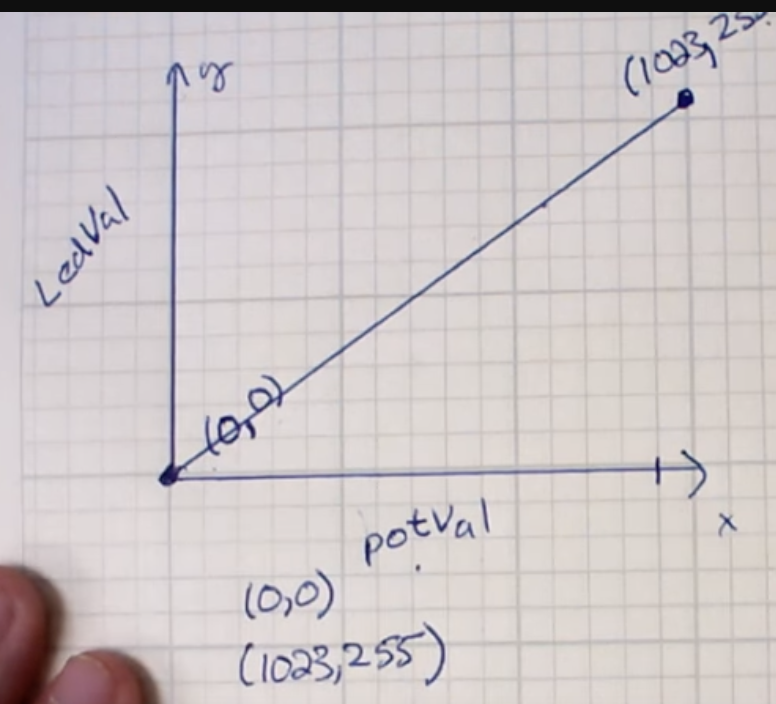 (1023,255
y
LedVal
(0,0)
potVal
x
(0,0)
(1023,255)